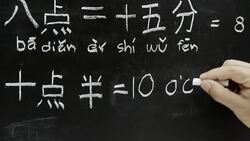 八点二十五分 = 8
bā diǎn èr shí wǔ fēn
十点半 = 10 o'c